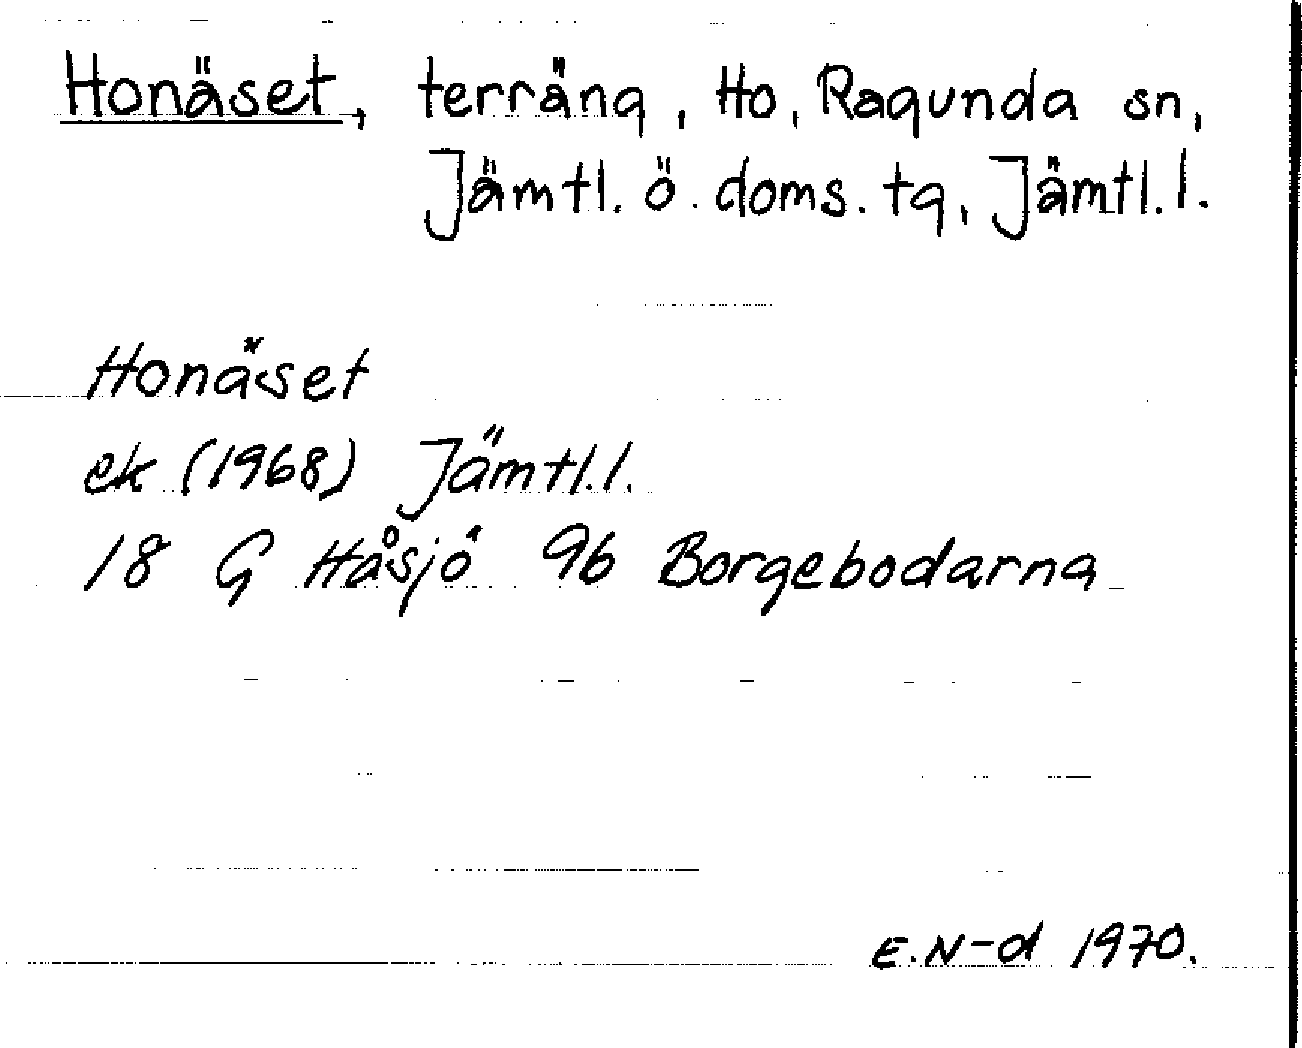 Honäset, terräng, Ho, Ragunda sn,
Jämtl. ö. doms. tg, Jämtl. l.
Honäset
ek (1968) Jämtl. l.
18 G Håsjö 9b Borgebodarna
E.N-d 1970.